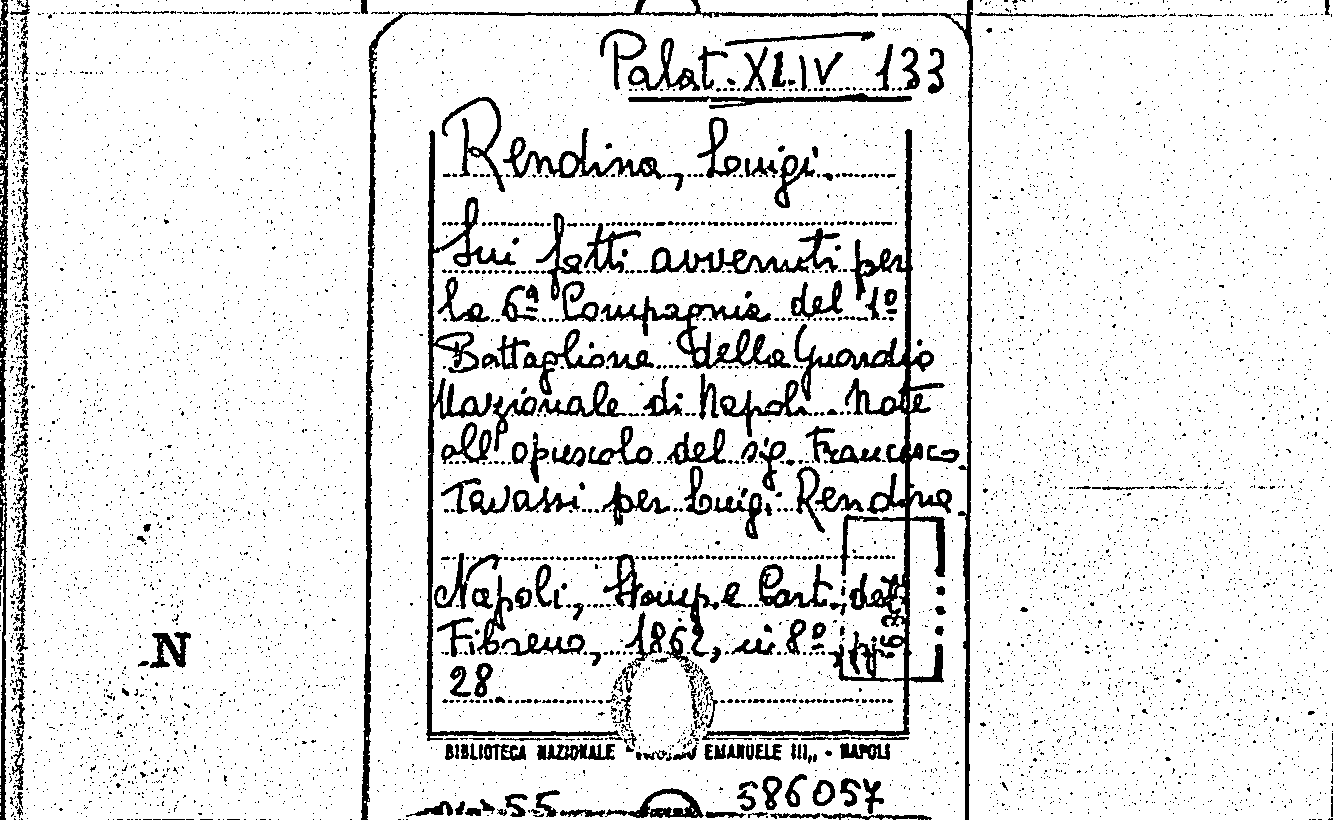 Palat. XLIV 133
Rendina, Luigi.
Sui fatti avvenuti per
la 6ª Compagnia del 1º
Battaglione della Guardia
Nazionale di Napoli. Note
all'opuscolo del sig. Francesco
Tavassi per Luigi Rendina.
Napoli, Stamp. e Cart. del
Fibreno, 1862, in 8º, pp.
28.
BIBLIOTECA NAZIONALE "VITTORIO EMANUELE III„ - NAPOLI
N
55
586057